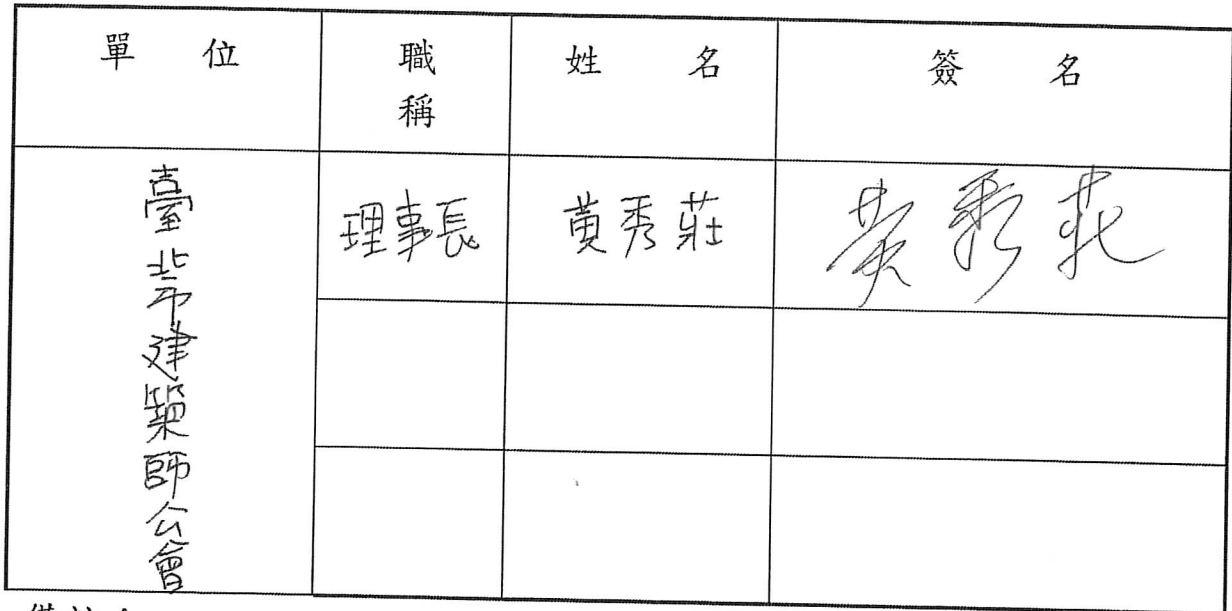 單位 職稱 姓名 簽名
臺北市建築師公會 理事長 黃秀莊 黃秀莊
備註: